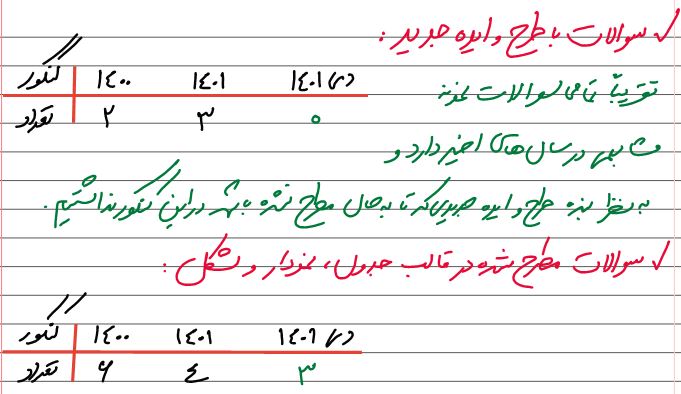 ✓ سوالات با طرح و ایده جدید :
کنکور ۱۴۰۰ ۱۴۰۱ دی ۱۴۰۱
تعداد ۲ ۳ ۰
تقریباً تمامی سوالات نمونه
مشابهی در سال های اخیر دارد و
به نظر بنده طرح و ایده جدیدی که تا به حال مطرح نشده باشد در این کنکور نداشتیم.
✓ سوالات مطرح شده در قالب جدول، نمودار و شکل :
کنکور ۱۴۰۰ ۱۴۰۱ دی ۱۴۰۱
تعداد ۶ ۴ ۳